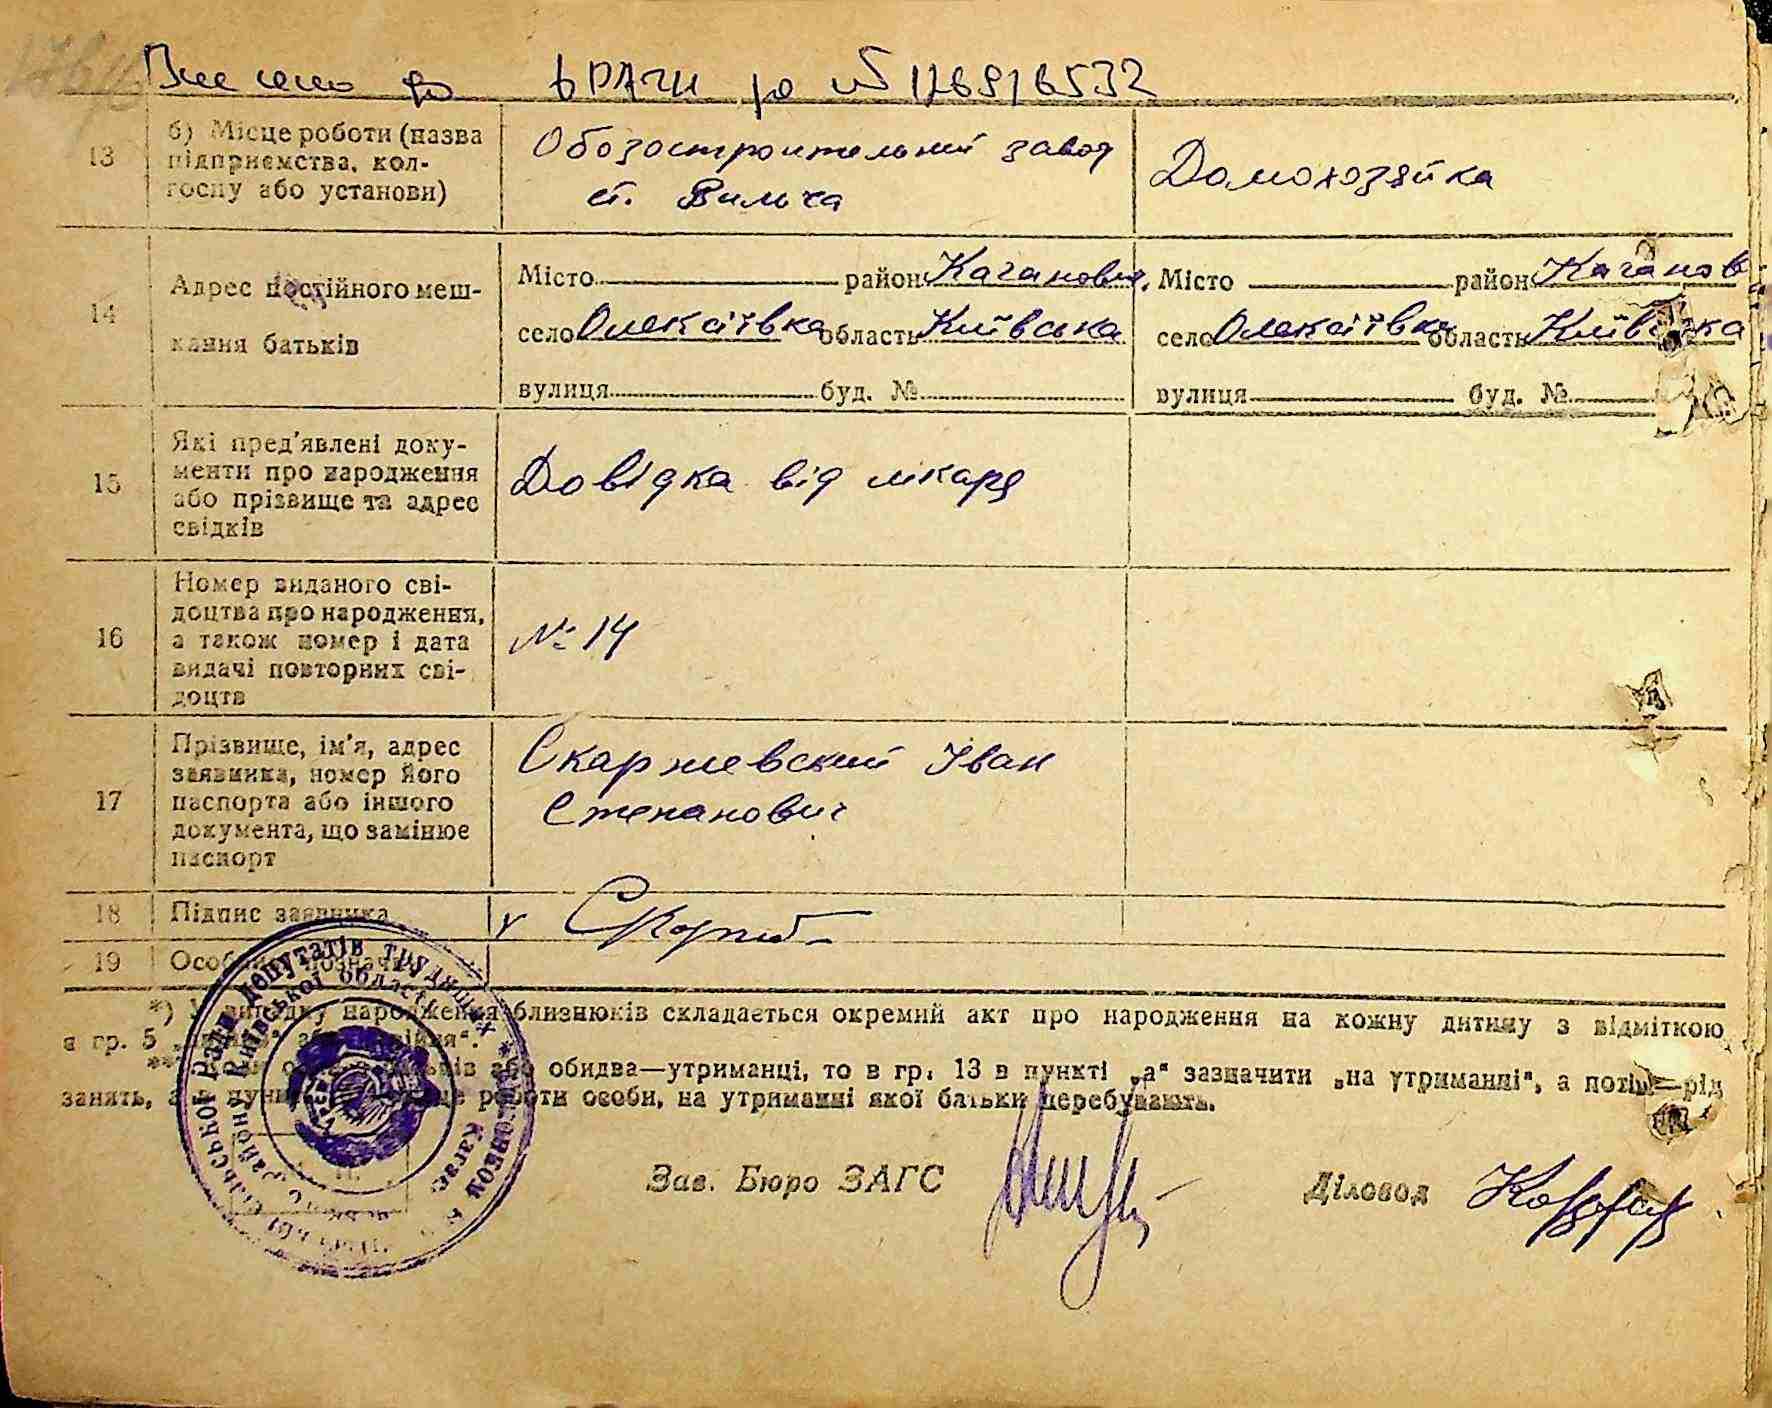 Внесено до
13
б) Місце роботи (назва
підприємства, кол-
госпу або установи)
Обозостроительний завод
ст. Вильча
Домохозяйка
14
Адрес постійного меш-
кання батьків
Місто район Каганович.
село Олексіївка область Київська
вулиця буд. №
Місто район Каганов
село Олексіївка область Київська
вулиця буд. №
15
Які пред'явлені доку-
менти про народження
або прізвище та адрес
свідків
Довідка від лікаря
16
Номер виданого сві-
доцтва про народження,
а також номер і дата
видачі повторних сві-
доцтв
№ 14
17
Прізвище, ім'я, адрес
заявника, номер його
паспорта або іншого
документа, що замінює
паспорт
Скаржевский Іван
Степанович
18
Підпис заявника
19
Особливі позначки
*) У випадку народження близнюків складається окремий акт про народження на кожну дитину з відміткою
в гр. 5
обидва—утриманці, то в гр. 13 в пункті „а" зазначити „на утриманні", а потім—рід
занять, а в пункті роботи особи, на утриманні якої батьки перебувають.
Ради депутатів трудящих
Київської області
Зав. Бюро ЗАГС
Діловод